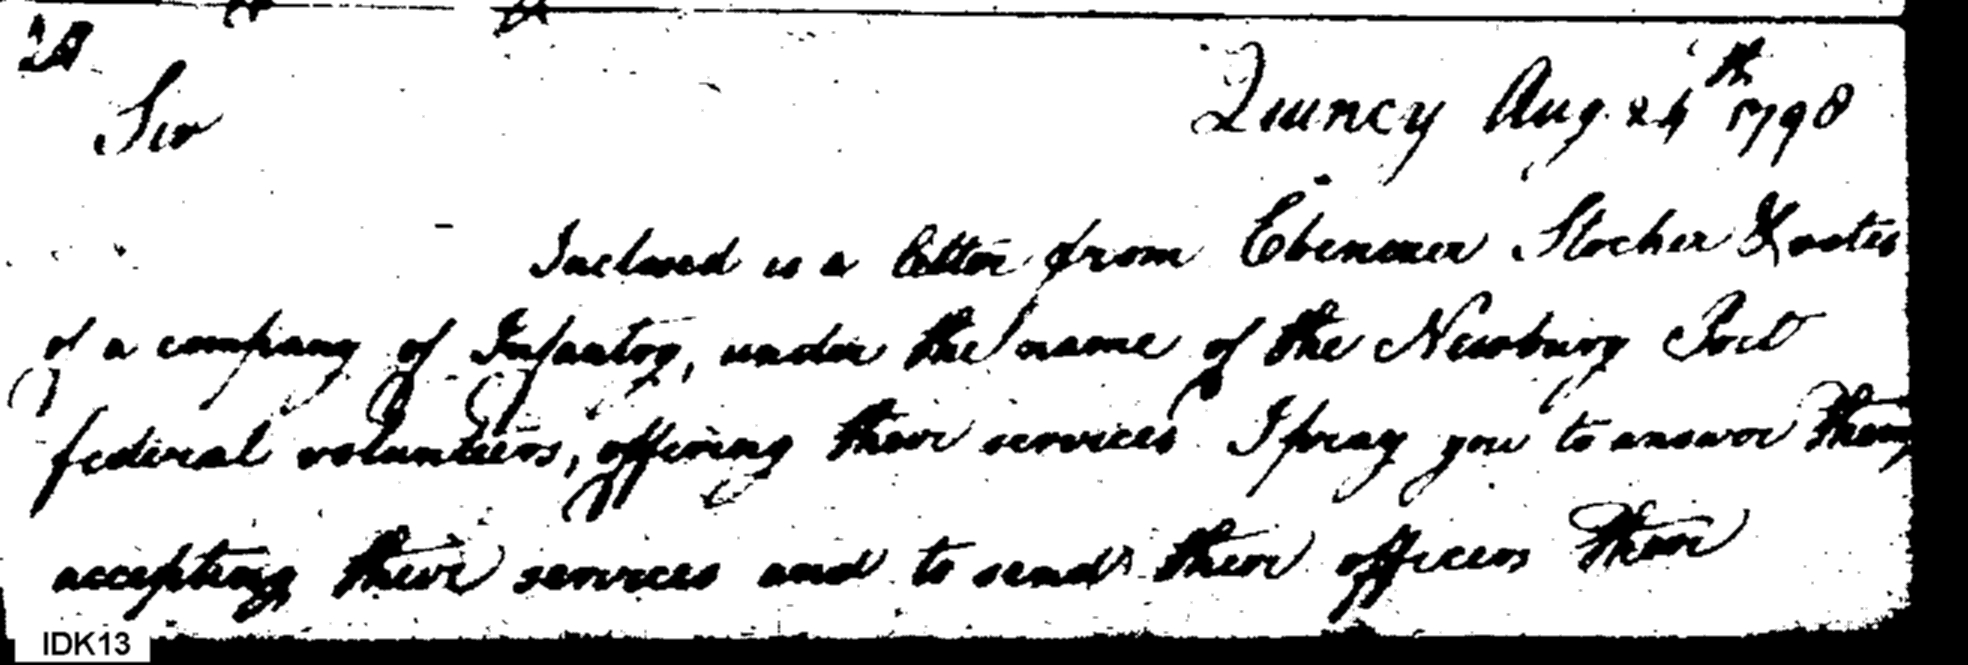 Sir
Quincy Aug. 24th 1798
Inclosed is a letter from Ebenezer Stocker & votes
of a company of Infantry, under the name of the Newbury Port
federal volunteers, offering their services I pray you to answer them,
accepting their services and to send their officers their
IDK13